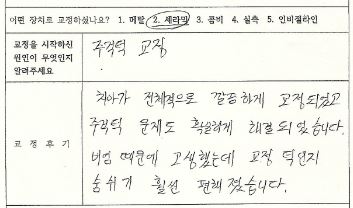 어떤 장치로 교정하셨나요? 1. 메탈 2. 세라믹 3. 콤비 4. 설측 5. 인비절라인
교정을 시작하신
원인이 무엇인지
알려주세요
주걱턱 교정
교 정 후 기
치아가 전체적으로 깔끔하게 교정되었고
주걱턱 문제도 확실하게 해결되었습니다.
비염 때문에 고생했는데 교정 덕인지
숨쉬기 훨씬 편해졌습니다.